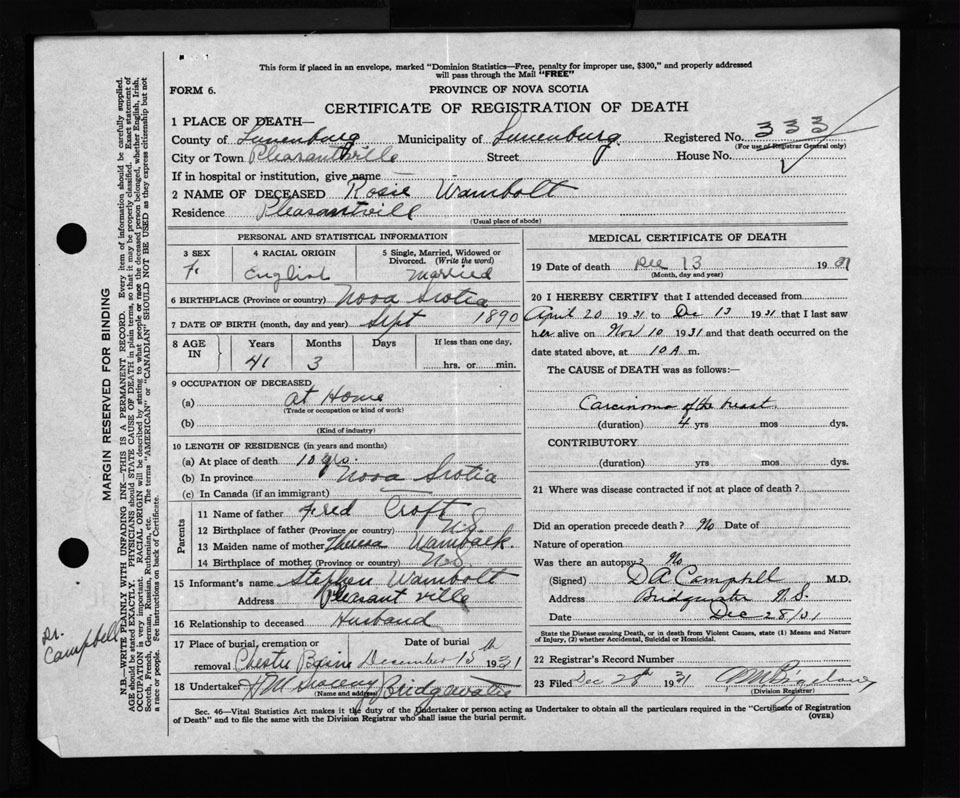 This form if placed in an envelope, marked "Dominion Statistics—Free, penalty for improper use, $300," and properly addressed
will pass through the Mail "FREE"
FORM 6.
PROVINCE OF NOVA SCOTIA
CERTIFICATE OF REGISTRATION OF DEATH
1 PLACE OF DEATH—
County of Lunenburg Municipality of Lunenburg Registered No.
(For use of Registrar General only)
City or Town Pleasantville Street House No.
If in hospital or institution, give name
2 NAME OF DECEASED Rosie Wambolt
Residence Pleasantvill
(Usual place of abode)
PERSONAL AND STATISTICAL INFORMATION
3 SEX 4 RACIAL ORIGIN 5 Single, Married, Widowed or
Divorced. (Write the word)
F. English Married
6 BIRTHPLACE (Province or country) Nova Scotia
7 DATE OF BIRTH (month, day and year) Sept 1890
8 AGE IN Years Months Days If less than one day,
41 3 hrs. or min.
9 OCCUPATION OF DECEASED
(a) at Home
(Trade or occupation or kind of work)
(b)
(Kind of industry)
10 LENGTH OF RESIDENCE (in years and months)
(a) At place of death 10 yrs.
(b) In province Nova Scotia
(c) In Canada (if an immigrant)
Parents
11 Name of father Fred Croft
12 Birthplace of father (Province or country) N.S.
13 Maiden name of mother Wamback
14 Birthplace of mother (Province or country) N.S.
15 Informant's name Stephen Wambolt
Address Pleasant ville
16 Relationship to deceased Husband
17 Place of burial, cremation or Date of burial
removal Chester Basin December 15th 1931
18 Undertaker Bridgewater
(Name and address)
MEDICAL CERTIFICATE OF DEATH
19 Date of death Dec 13 19 31
(Month, day and year)
20 I HEREBY CERTIFY that I attended deceased from
April 20 1931 to Dec 13 1931 that I last saw
her alive on Nov 10 1931 and that death occurred on
date stated above, at 10 A m.
The CAUSE of DEATH was as follows:—
Carcinoma of the breast
(duration) 4 yrs mos dys.
CONTRIBUTORY
(duration) yrs. mos. dys.
21 Where was disease contracted if not at place of death?
Did an operation precede death? No Date of
Nature of operation
Was there an autopsy? No
(Signed) D A Campbell M.D.
Address Bridgewater N.S.
Date Dec 28/31
State the Disease causing Death, or in death from Violent Causes, state (1) Means and Nature
of Injury, (2) whether Accidental, Suicidal or Homicidal.
22 Registrar's Record Number
23 Filed Dec 28th 1931
(Division Registrar)
Sec. 46—Vital Statistics Act makes it the duty of the Undertaker or person acting as Undertaker to obtain all the particulars required in the "Certificate of Registration
of Death" and to file the same with the Division Registrar who shall issue the burial permit.
(OVER)
MARGIN RESERVED FOR BINDING
N.B.—WRITE PLAINLY WITH UNFADING INK—THIS IS A PERMANENT RECORD. Every item of information should be carefully supplied.
AGE should be stated EXACTLY. PHYSICIANS should STATE CAUSE OF DEATH in plain terms, so that it may be properly classified. Exact statement of
OCCUPATION is very important. RACIAL ORIGIN will be described by stating to what people or race the deceased person belonged, whether English, Irish,
Scotch, French, German, Russian, Ruthenian, etc. The terms "AMERICAN" or "CANADIAN" SHOULD NOT BE USED as they express citizenship but not
a race or people. See instructions on back of Certificate.
Dr.
Campbell